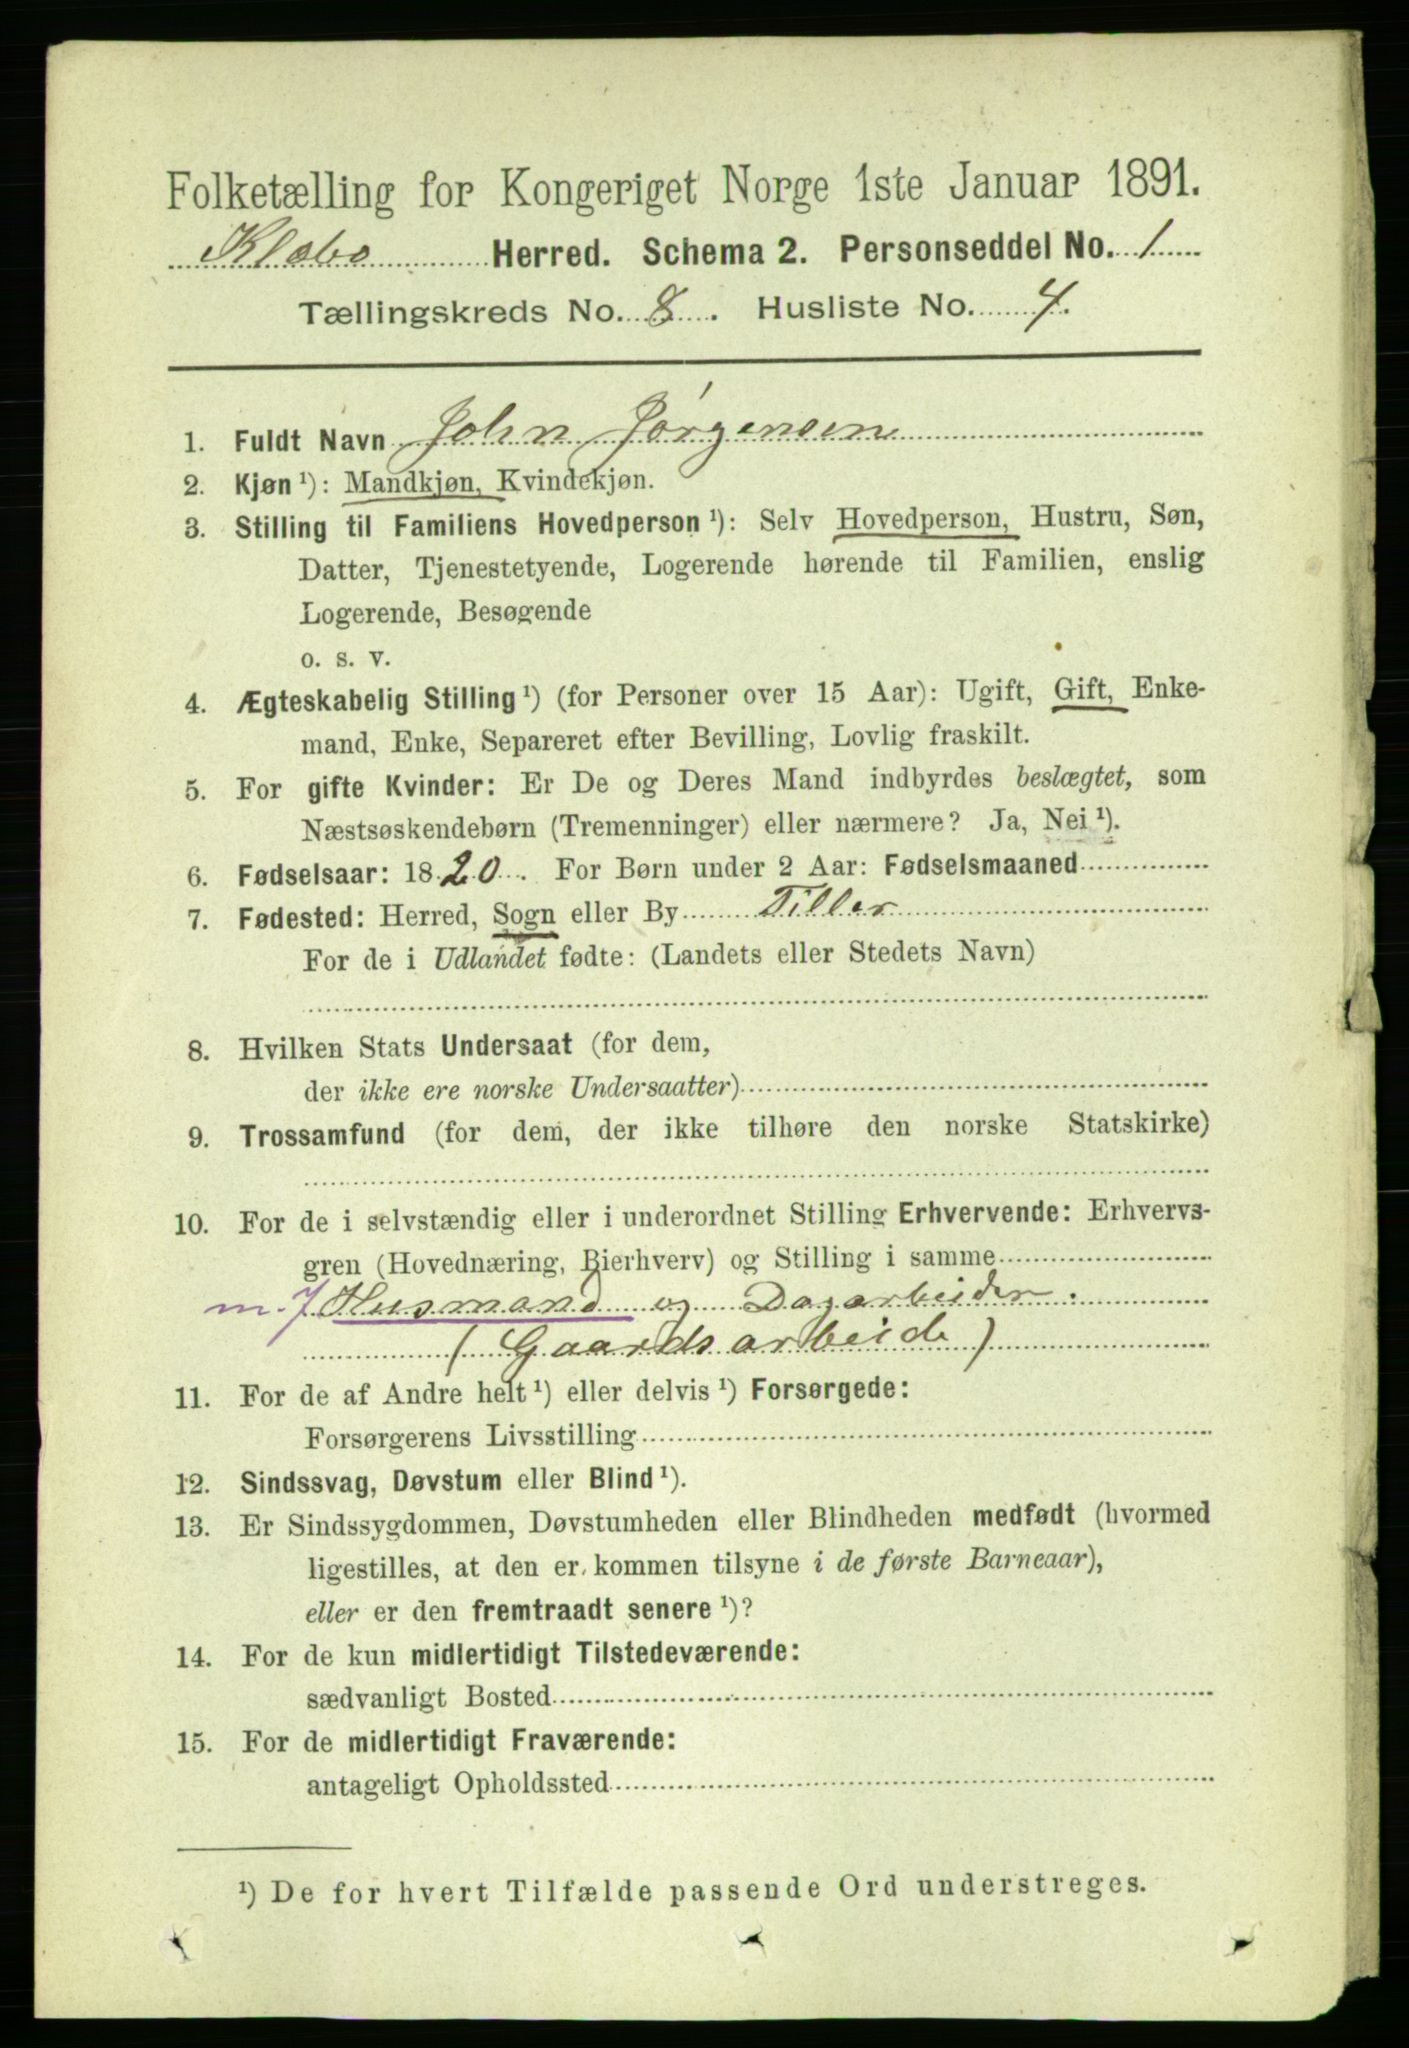 Folketælling for Kongeriget Norge 1ste Januar 1891.
Klæbo Herred. Schema 2. Personseddel No. 1
Tællingskreds No. 8. Husliste No. 4.
1. Fuldt Navn John Jørgensen
2. Kjøn ¹): Mandkjøn, Kvindekjøn.
3. Stilling til Familiens Hovedperson ¹): Selv Hovedperson, Hustru, Søn,
Datter, Tjenestetyende, Logerende hørende til Familien, enslig
Logerende, Besøgende
o. s. v.
4. Ægteskabelig Stilling ¹) (for Personer over 15 Aar): Ugift, Gift, Enke-
mand, Enke, Separeret efter Bevilling, Lovlig fraskilt.
5. For gifte Kvinder: Er De og Deres Mand indbyrdes beslægtet, som
Næstsøskendebørn (Tremenninger) eller nærmere? Ja, Nei ¹).
6. Fødselsaar: 1820. For Børn under 2 Aar: Fødselsmaaned
7. Fødested: Herred, Sogn eller By Tiller
For de i Udlandet fødte: (Landets eller Stedets Navn)
8. Hvilken Stats Undersaat (for dem,
der ikke ere norske Undersaatter)
9. Trossamfund (for dem, der ikke tilhøre den norske Statskirke)
10. For de i selvstændig eller i underordnet Stilling Erhvervende: Erhvervs-
gren (Hovednæring, Bierhverv) og Stilling i samme
m. J Husmand og Dagarbeider.
(Gaardsarbeide)
11. For de af Andre helt ¹) eller delvis ¹) Forsørgede:
Forsørgerens Livsstilling
12. Sindssvag, Døvstum eller Blind ¹).
13. Er Sindssygdommen, Døvstumheden eller Blindheden medfødt (hvormed
ligestilles, at den er kommen tilsyne i de første Barneaar),
eller er den fremtraadt senere ¹)?
14. For de kun midlertidigt Tilstedeværende:
sædvanligt Bosted
15. For de midlertidigt Fraværende:
antageligt Opholdssted
¹) De for hvert Tilfælde passende Ord understreges.